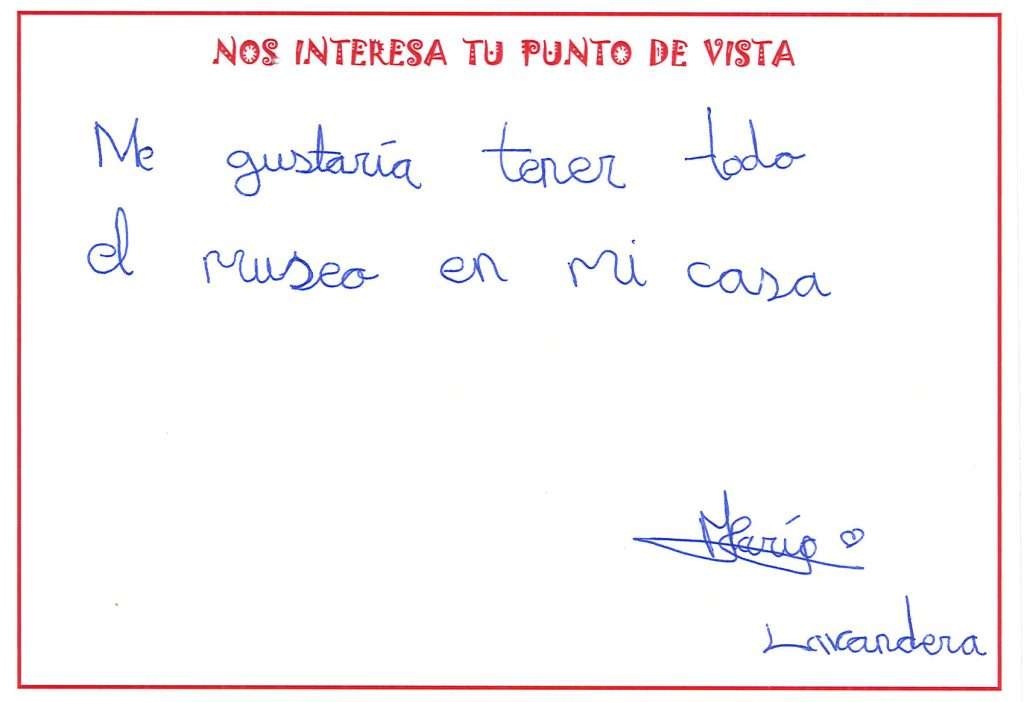 NOS INTERESA TU PUNTO DE VISTA
Me gustaría tener todo
el museo en mi casa
Marío
Lavandera